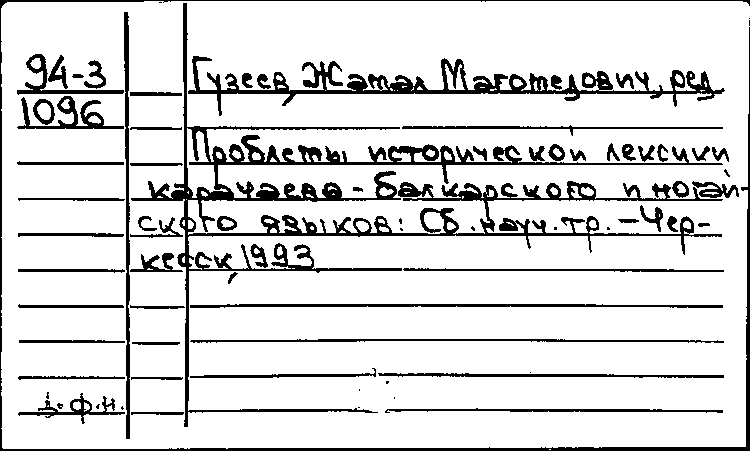 94-3 Гузеев, Жамал Магомедович, ред.
1096
Проблемы исторической лексики
карачаево-балкарского и ногай-
ского языков: Сб. науч. тр. — Чер-
кесск, 1993
д.ф.н.